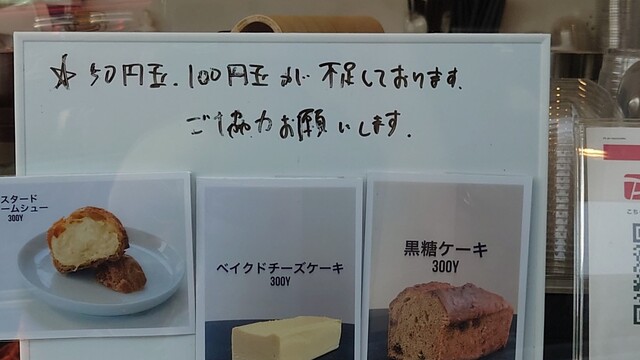 ☆50円玉、100円玉が不足しております。
ご協力お願いします。
スタード
ームシュー
300Y
ベイクドチーズケーキ
300Y
黒糖ケーキ
300Y
こち